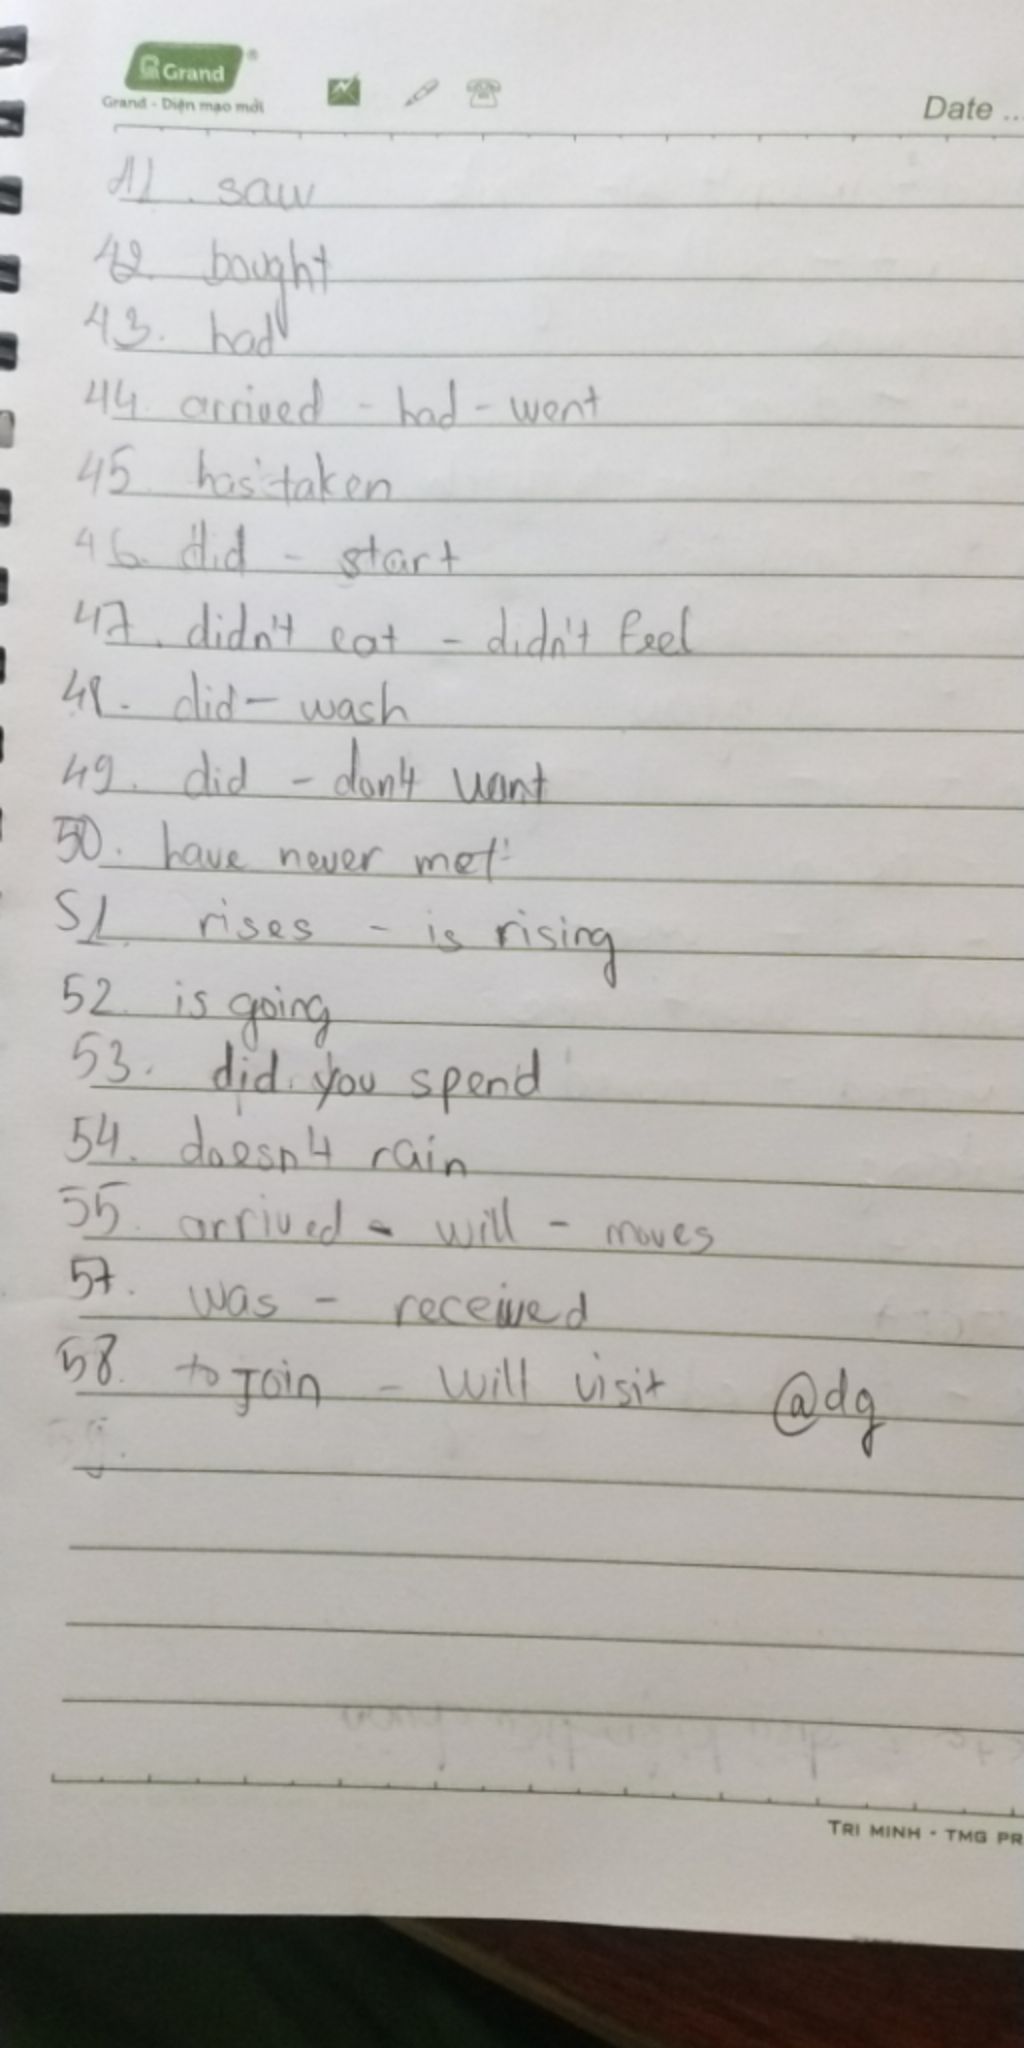 Grand®
Grand - Diện mạo mới
Date ...
41. saw
42. bought
43. had
44. arrived - had - went
45. has taken
46. did - start
47. didn't eat - didn't feel
48. did - wash
49. did - don't want
50. have never met
51. rises - is rising
52. is going
53. did you spend
54. doesn't rain
55. arrived - will - moves
57. was - received
58. to join - will visit @dg
TRI MINH - TMG PR